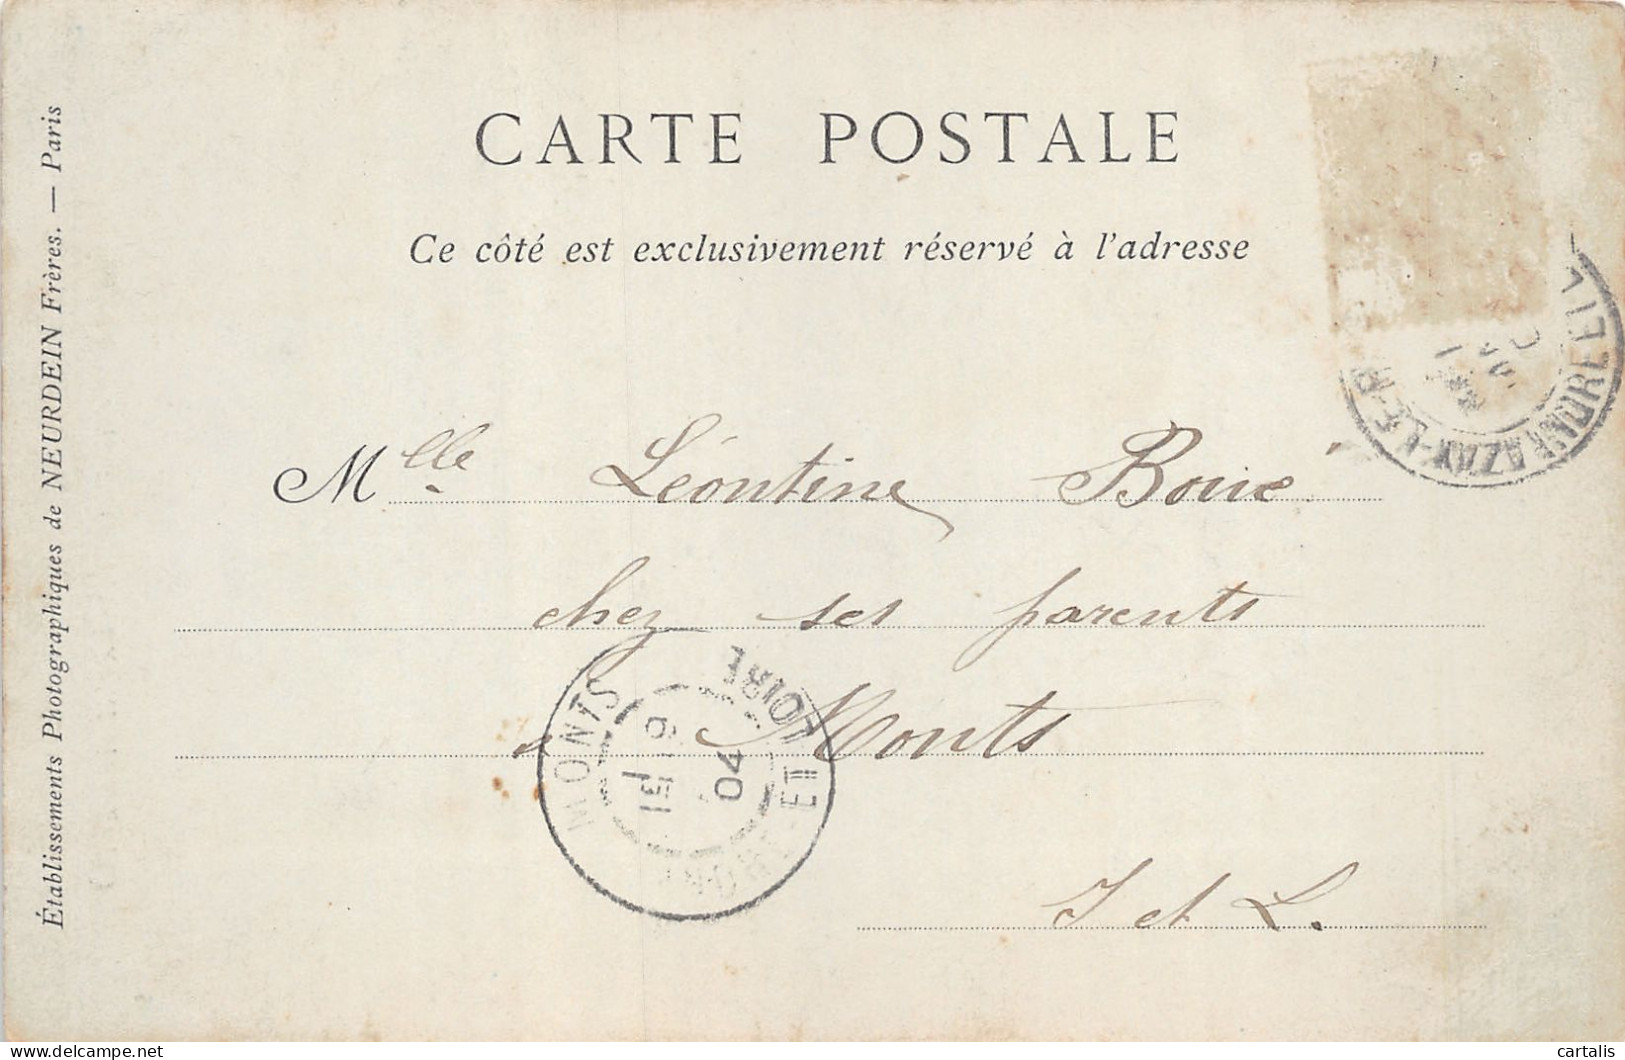 CARTE POSTALE
Ce côté est exclusivement réservé à l'adresse
Établissements Photographiques de NEURDEIN Frères. — Paris
Mlle Léontine Boué
chez ses parents
à Monts
I et L.
MONTS
INDRE-ET-LOIRE
19
04
AZAY-LE-R
delcampe.net
cartalis